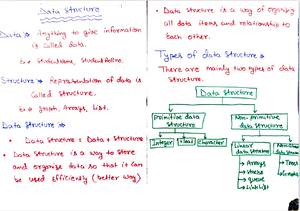 Data Structure
Data :→ Anything to give information
is called data.
Ex:- Student Name, Student Rollno.
Structure :→ Representation of data is
called structure.
Ex:- graph, Arrays, List.
Data Structure :→
• Data Structure = Data + Structure
• Data Structure is a way to store
and organize data so that it can
be used efficiently (better way)
• Data structure is a way of organizing
all data items and relationship to
each other.
Types of data structure :→
→ There are mainly two types of data
structure.
Data Structure
Primitive data
structure
Non-primitive data
structure
Integer
Float
Character
Linear
data structure
Non-linear
data structure
→ Arrays
→ Stacks
→ Queue
→ Link List
→ Trees